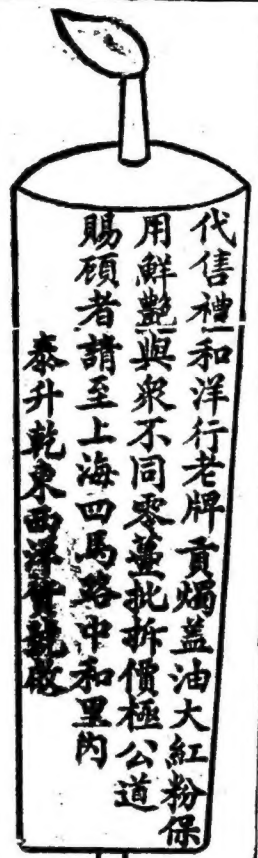 代售禮和洋行老牌貢燭蓋油大紅粉保
用鮮艷與衆不同零躉批拆價極公道
賜顧者請至上海四馬路中和里內
泰升乾東西洋貨號啟